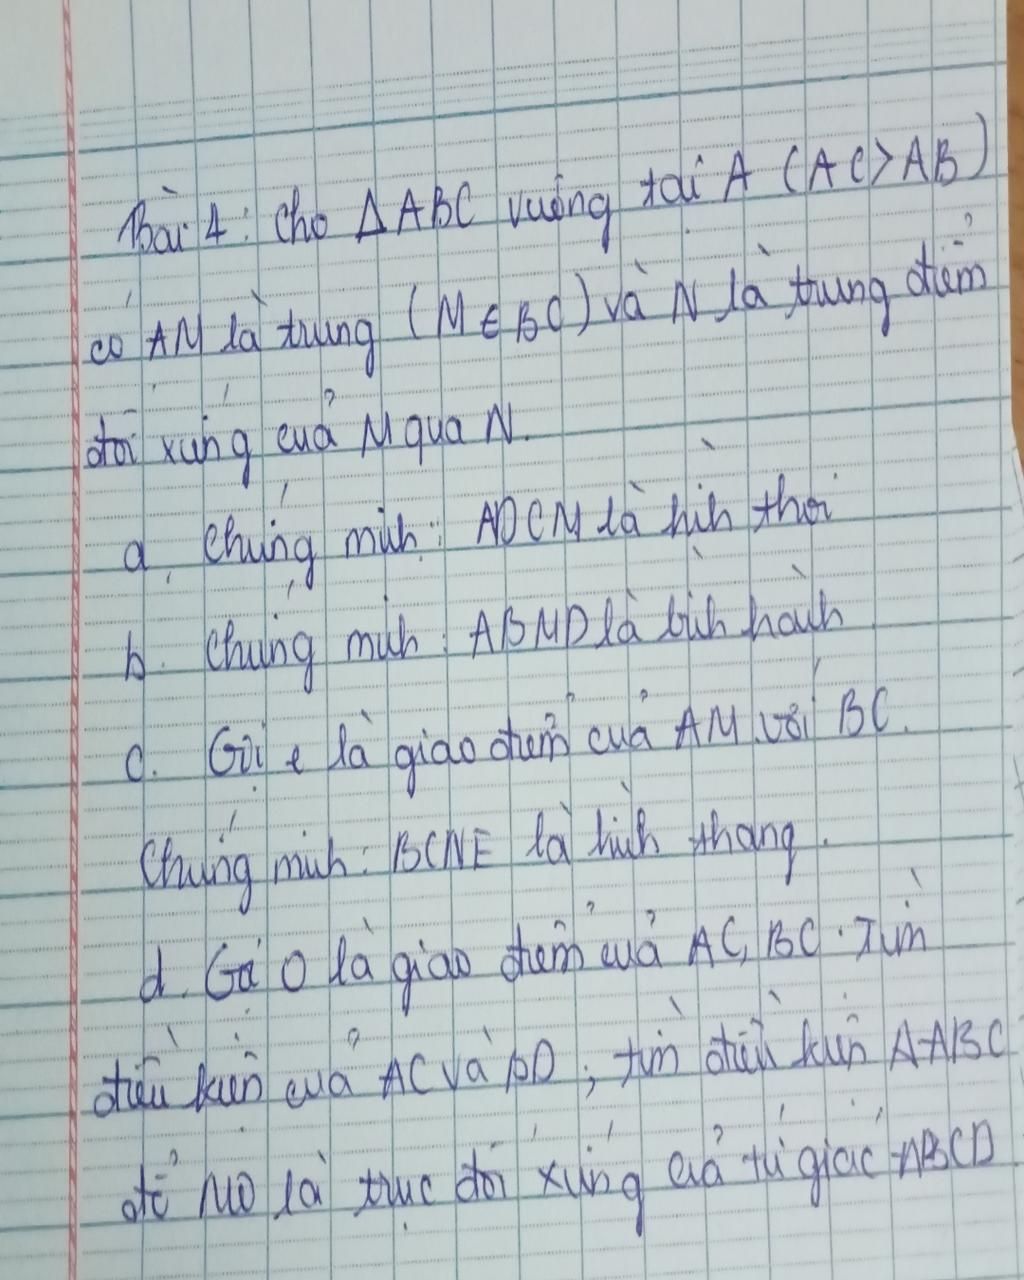 Bài 4: Cho ΔABC vuông tại A (AC>AB)
có AM là trung (M ∈ BC) và N là trung điểm
đối xứng của M qua N.
a, Chứng minh: ADCM là hình thoi
b. Chứng minh: ABMD là bình hành
c. Gọi e là giao điểm của AM với BC.
Chứng minh: BCNE là hình thang.
d. Gọi O là giao điểm của AC, BC. Tìm
điều kiện của AC và BD; tìm điều kiện ΔABC
để MO là trục đối xứng của tứ giác ABCD